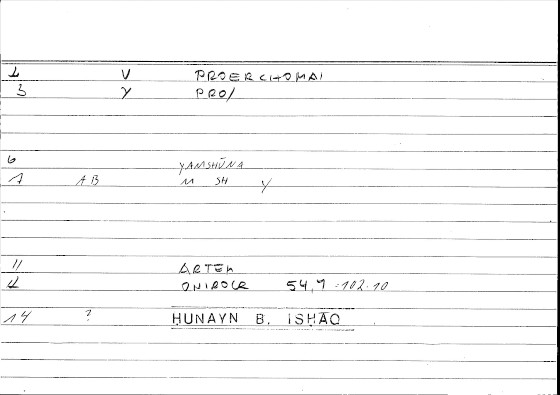 1 V PROERCHOMAI
3 Y PRO/
6 YAMSHŪNA
7 AB M SH Y
11 ARTEM
12 ONIROCR 54,9 -102.10
14 ? HUNAYN B. ISHĀQ